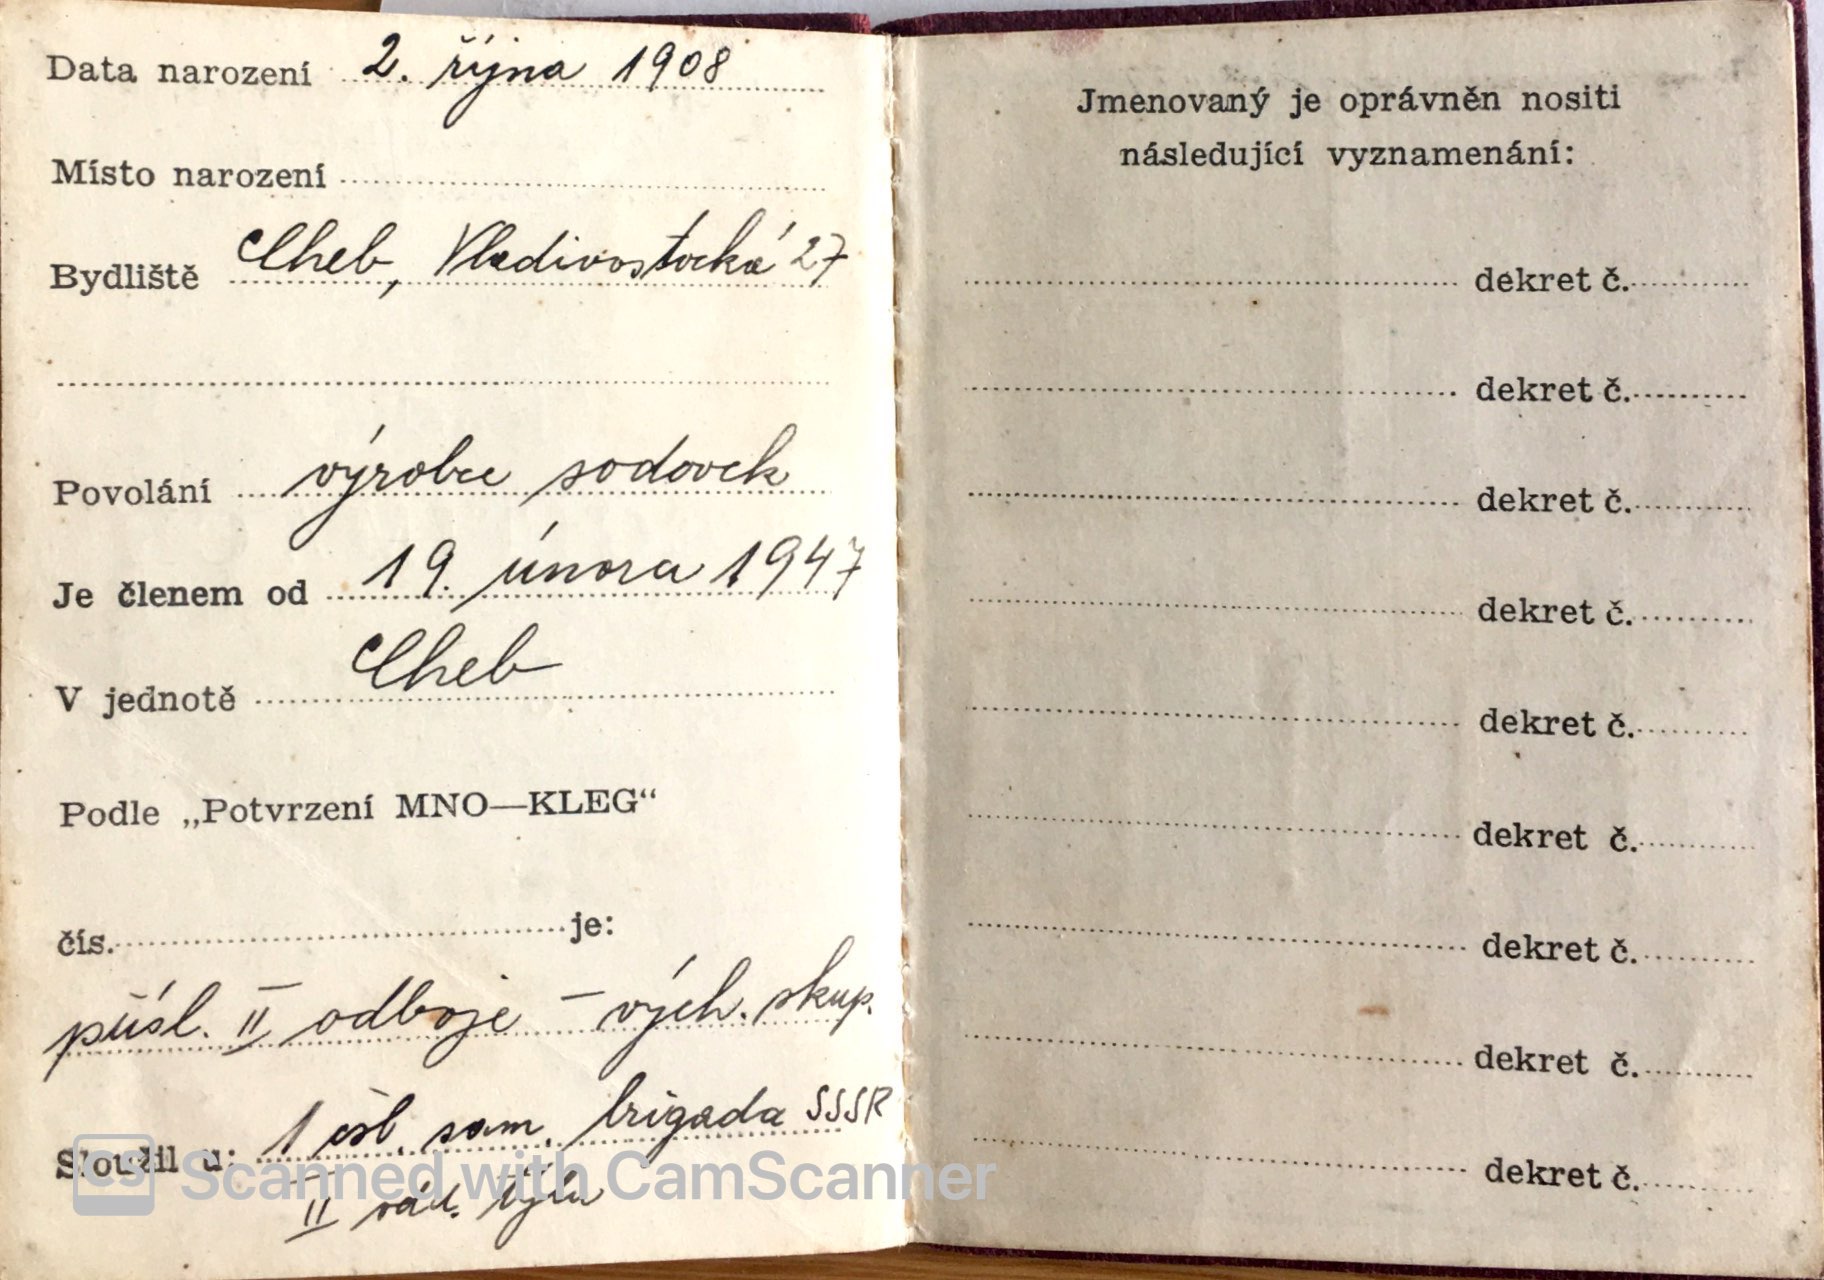 Data narození 2. října 1908
Místo narození
Bydliště Cheb, Vladivostocká 27
Povolání výrobce sodovek
Je členem od 19. února 1947
V jednotě Cheb
Podle „Potvrzení MNO—KLEG“
čís. je:
přísl. II odboje – vých. skup.
Sloužil u: 1 čsl. sam. brigada SSSR
II týlu
CS Scanned with CamScanner
Jmenovaný je oprávněn nositi
následující vyznamenání:
dekret č.
dekret č.
dekret č.
dekret č.
dekret č.
dekret č.
dekret č.
dekret č.
dekret č.